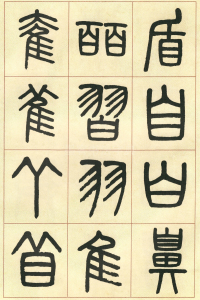 盾自白鼻
皕習羽隹
奞雈𠁥苜